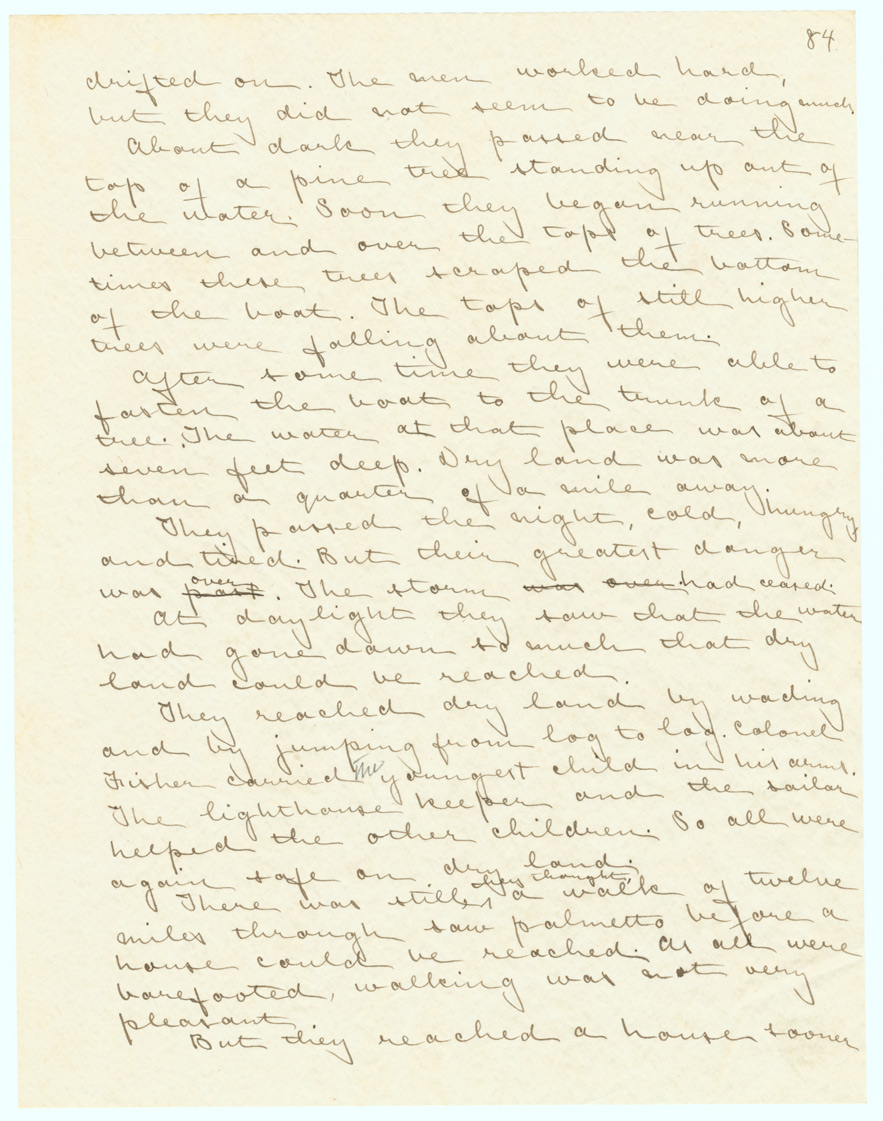 84
drifted on. The men worked hard,
but they did not seem to be doing much.
About dark they passed near the
top of a pine tree standing up out of
the water. Soon they began running
between and over the tops of trees. Some-
times these trees scraped the bottom
of the boat. The tops of still higher
trees were falling about them.
After some time they were able to
fasten the boat to the trunk of a
tree. The water at that place was about
seven feet deep. Dry land was more
than a quarter of a mile away.
They passed the night, cold, hungry
and tired. But their greatest danger
over
was past. The storm was over had ceased.
At daylight they saw that the water
had gone down so much that dry
land could be reached.
They reached dry land by wading
and by jumping from log to log. Colonel
Fisher carried the youngest child in his arms.
The lighthouse keeper and the sailor
helped the other children. So all were
again safe on dry land.
they thought,
There was still, a walk of twelve
miles through saw palmetto before a
house could be reached. As all were
barefooted, walking was not very
pleasant.
But they reached a house sooner